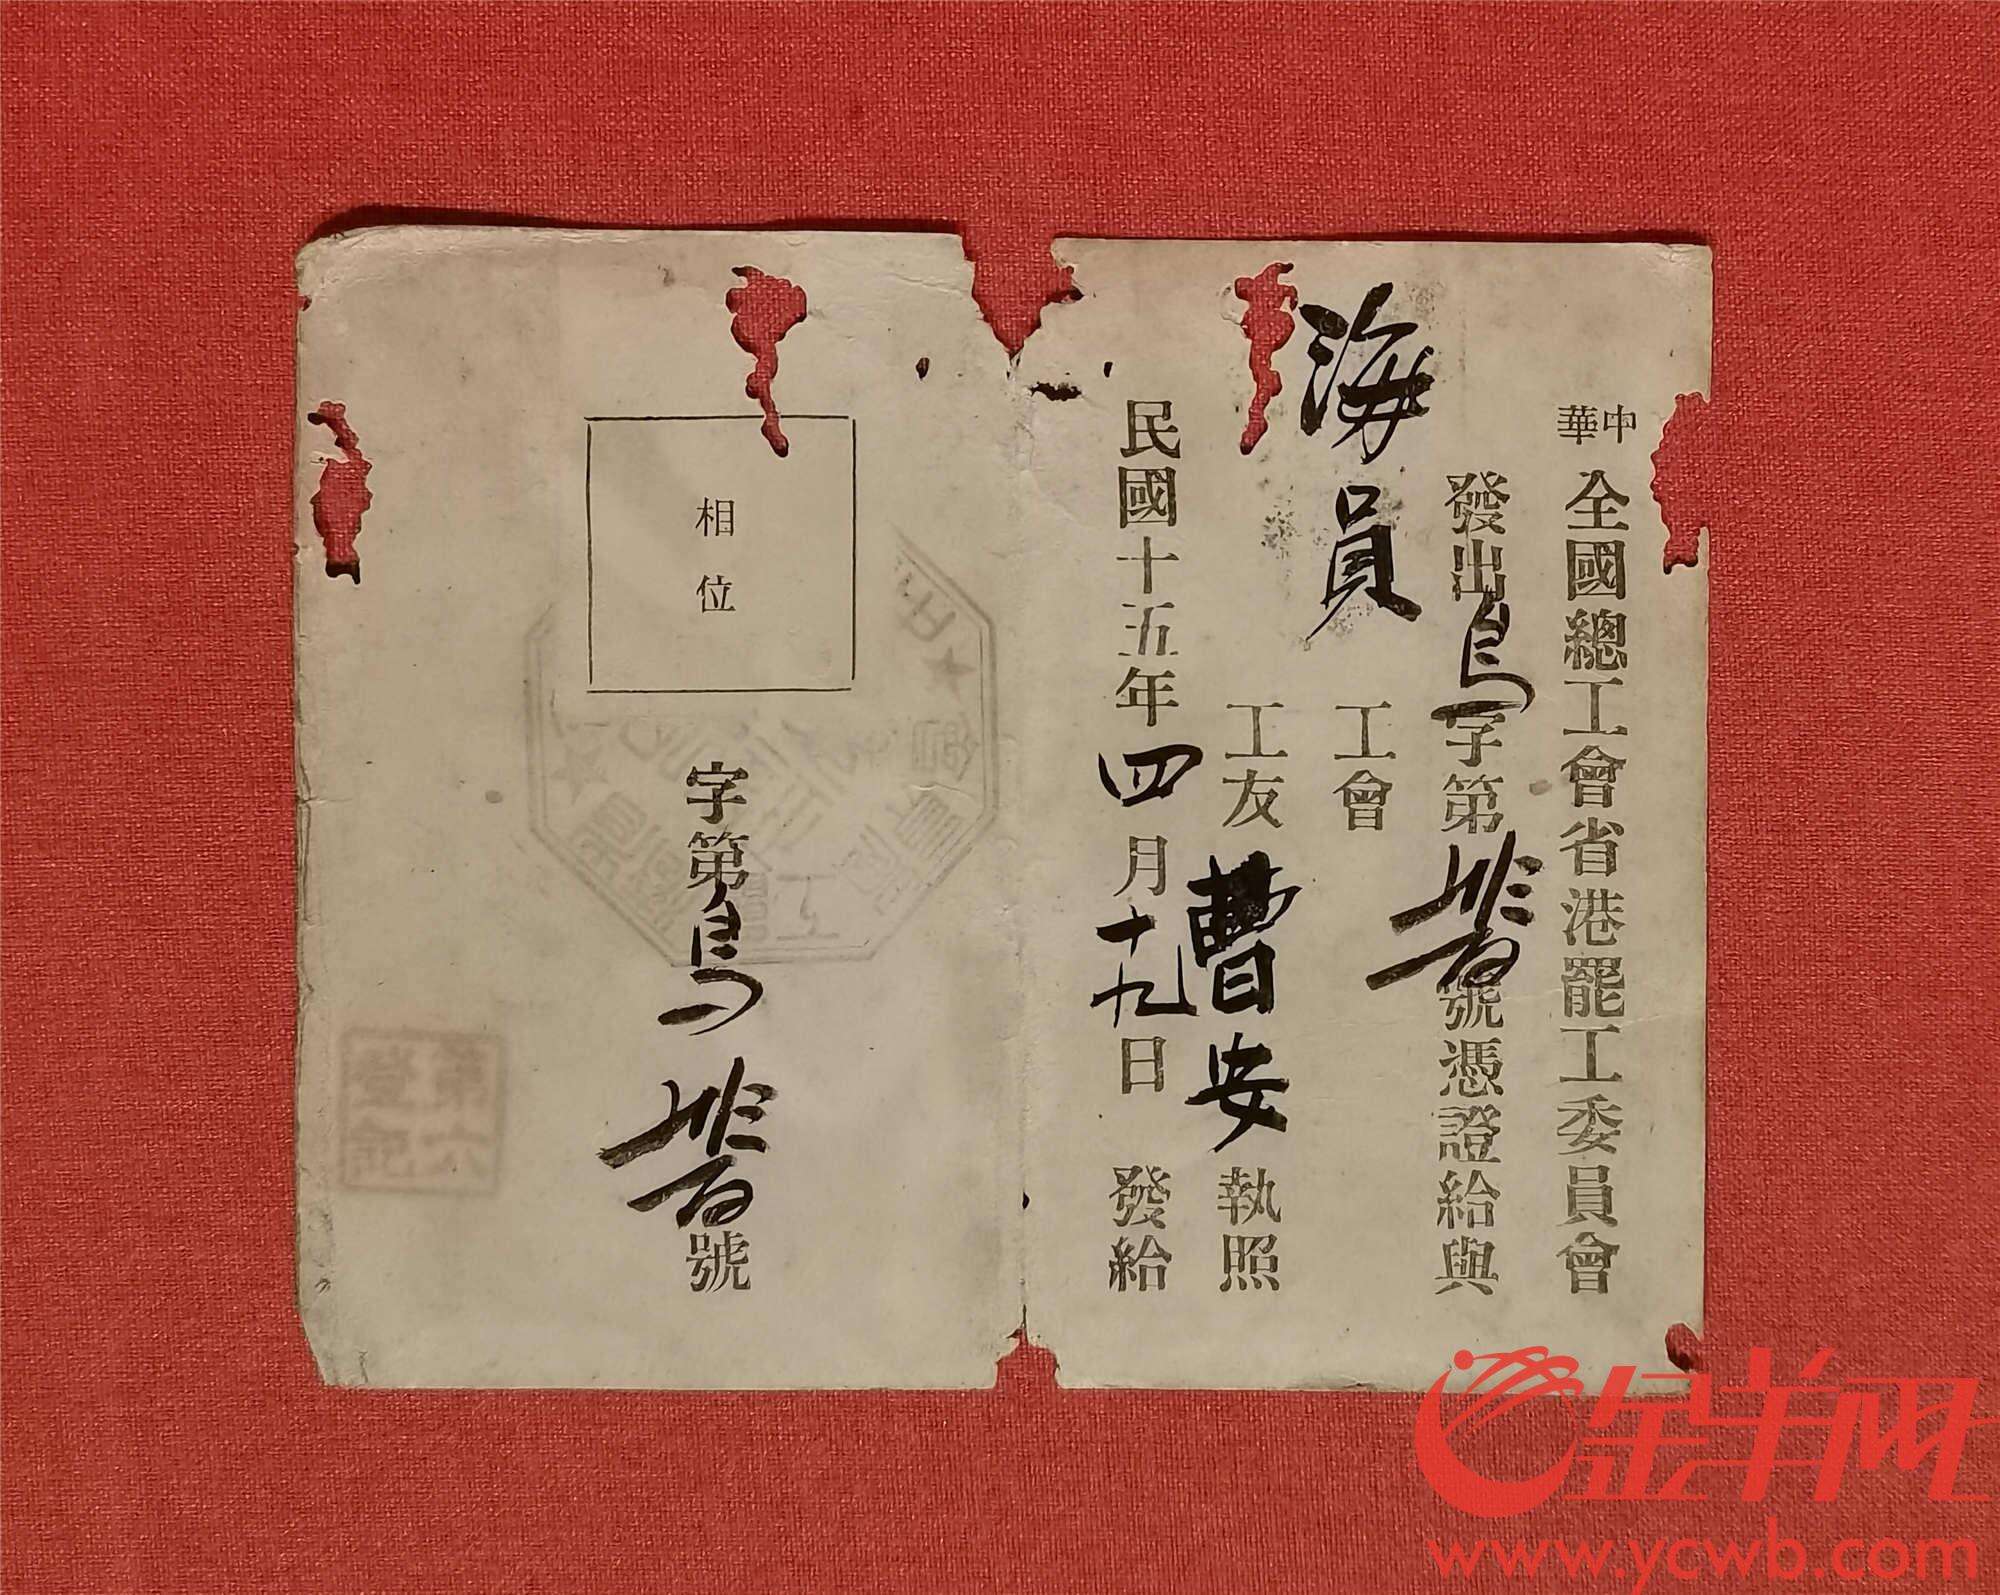 中華全國總工會省港罷工委員會
發出字第號憑證給與
海員工會
工友曹安執照
民國十五年四月十九日發給
相位
字第號
金羊网
www.ycwb.com